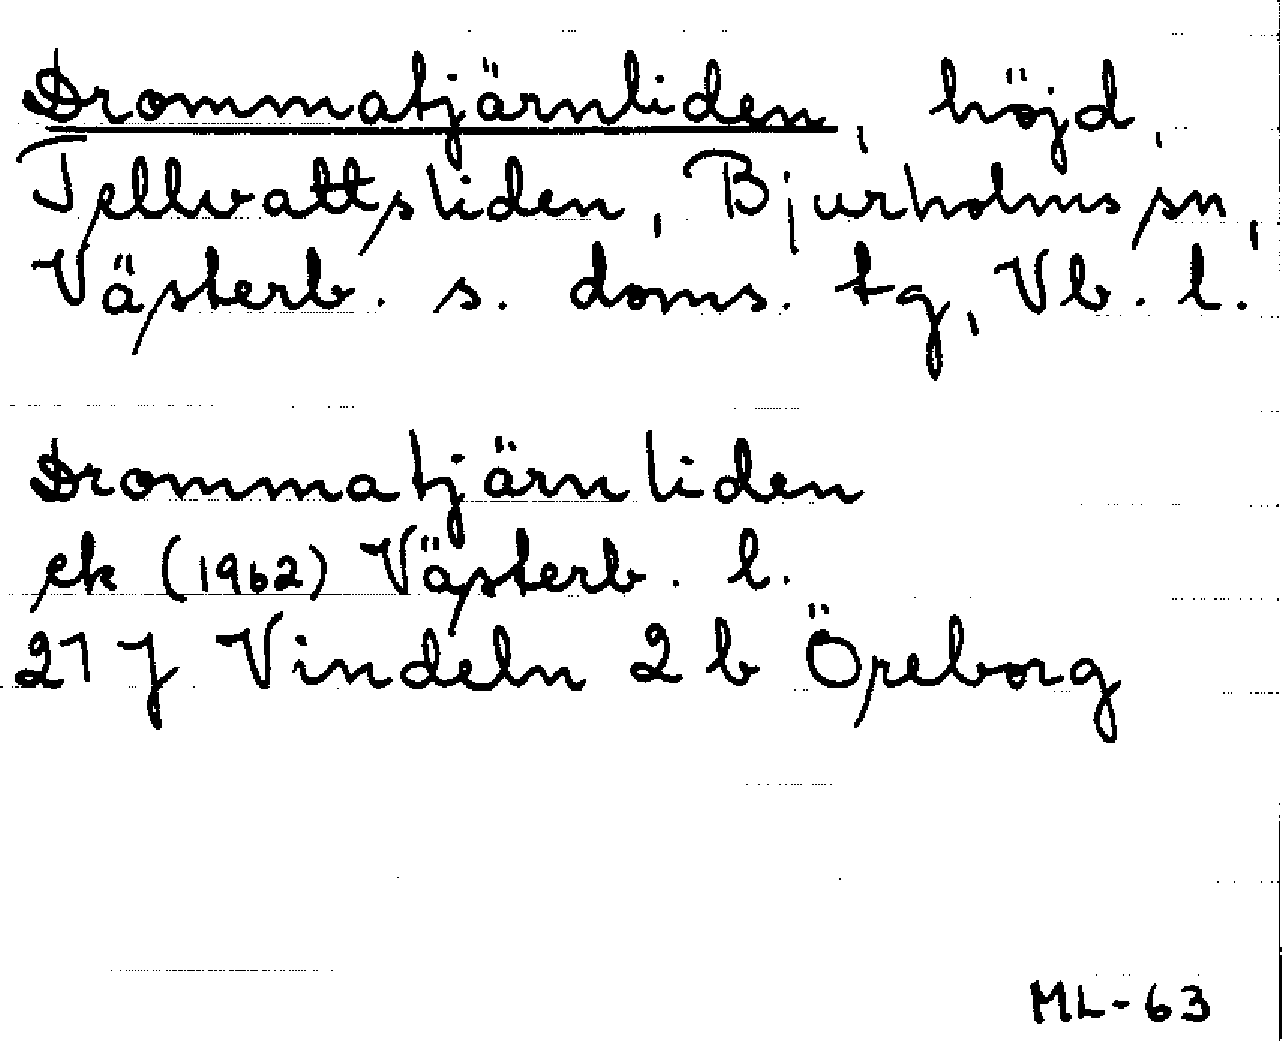 Drommatjärnliden, höjd,
Tellvattsliden, Bjurholms sn,
Västerb. s. doms. tg, Vb. l.
Drommatjärnliden
ek (1962) Västerb. l.
21 J Vindeln 2 b Öreborg
ML-63